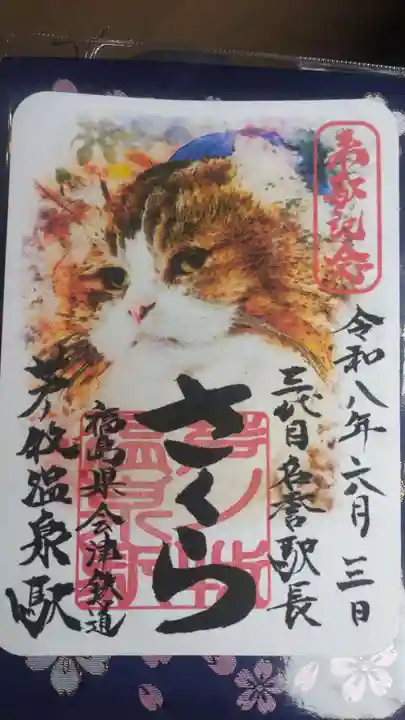 来駅記念
令和八年六月三日
三代目名誉駅長
さくら
芦ノ牧
温泉駅
福島県会津鉄道
芦ノ牧温泉駅